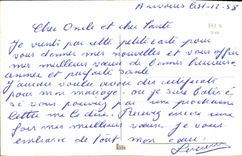 Cher Oncle et cher Tante
Je vient par cette petite carte pour
vous donner mes nouvelles et vous offrir
mes meilleurs vœux de bonne heureuse
année et parfaite santé
J'aurai voulu avoir des certificats
pour mon mariage où je suis
si vous pouvez par une prochaine
lettre me le dire. Recevez encore une
fois mes meilleurs vœux. Je vous
embrasse de tout mon cœur